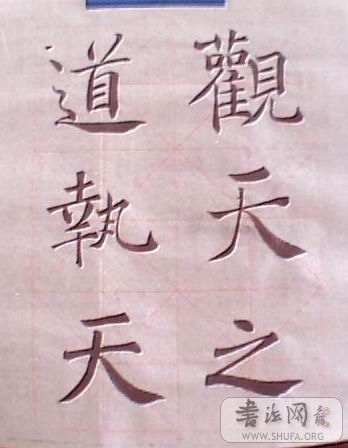 觀天之
道執天
書法网
WWW.SHUFA.ORG